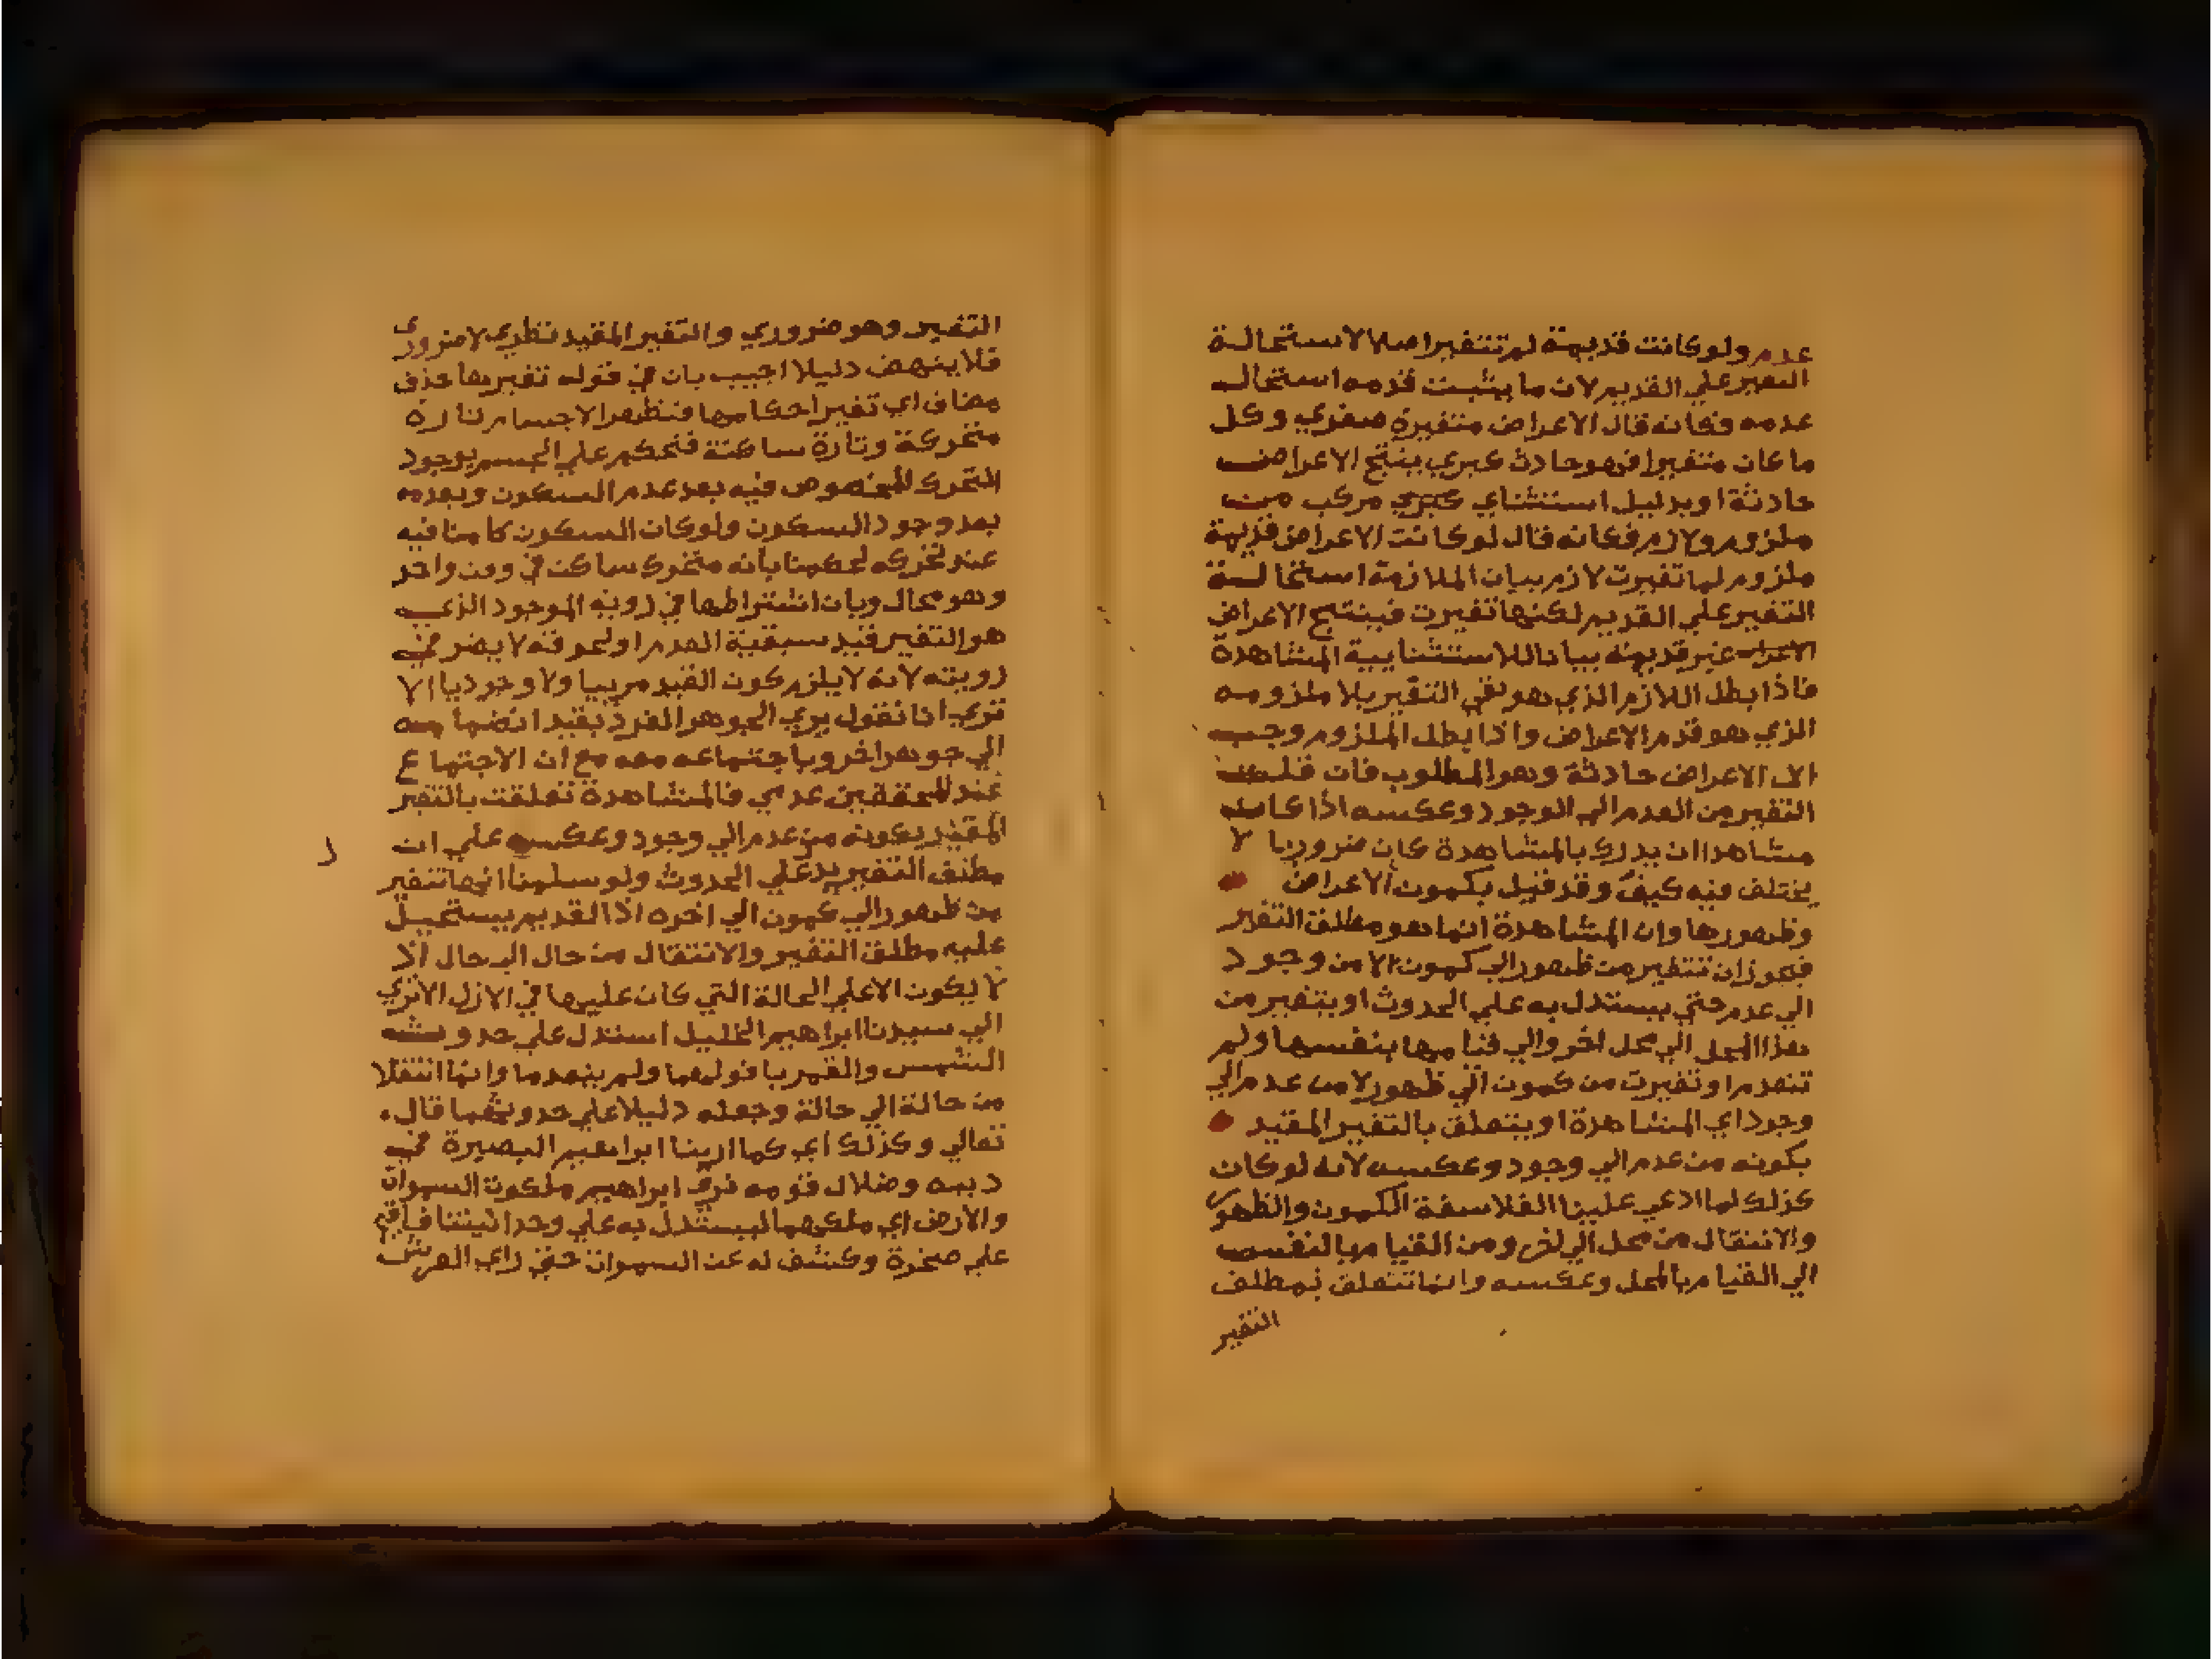 عدم ولو كانت قديمة لم تتغير اصلا لاستحالة
التغير علي القديم لان ما يثبت قدمه استحال
عدمه فكانه قال الاعراض متغيرة صغري وكل
ما كان متغيرا فهو حادث كبري ينتج الاعراض
حادثة او بدليل استثناي كبري مركب من
ملزوم ولازم فكانه قال لو كانت الاعراض قديمة
ملزوم لما تغيرت لازم بيان الملازمة استحالة
التغير علي القديم لكنها تغيرت فينتج الاعراض
غير قديمة بيانا للاستثنايية المشاهدة
فاذا بطل اللازم الذي هو نفي التغير بلا ملزومه
الذي هو قدم الاعراض واذا بطل الملزوم وجب
ان الاعراض حادثة وهو المطلوب فان قلت
التغير من العدم الي الوجود وعكسه اذا كان
مشاهدا ان يدرك بالمشاهدة كان ضروريا لا
يختلف فيه كيف وقد قيل بكمون الاعراض
وظهورها وان المشاهدة انما هو مطلق التغير
فيجوز ان تتغير من ظهور الي كمون لا من وجود
الي عدم حتي يستدل به علي الحدوث او يتغير من
هذا المحل الي محل اخر والي قيامها بنفسها ولم
تنعدم او تغيرت من كمون الي ظهور لا من عدم الي
وجود اي المشاهدة او يتعلق بالتغير المقيد
بكونه من عدم الي وجود وعكسه لانه لو كان
كذلك لما ادعي علينا الفلاسفة الكمون والظهور
والانتقال من محل الي اخر ومن القيام بالنفس
الي القيام بالمحل وعكسه وانما تتعلق بمطلق
التغير
التغير وهو ضروري والتغير المقيد نظري لا ضروري
فلا ينهض دليلا اجيب بان في قوله تغيرها حذف
مضاف اي تغير احكامها فتظهر الاجسام تارة
متحركة وتارة ساكنة فنحكم علي الجسم بوجود
التحرك المخصوص فيه بعد عدم السكون وبعدمه
بعد وجود السكون ولو كان السكون كامنا فيه
عند تحركه لحكمنا بانه متحرك ساكن في وقت واحد
وهو محال وبان اشتراطها في روية الموجود الذي
هو التغير قيد سبقية العدم او لحوقه لا يضر في
رويته لانه لا يلزم كون القيد مرييا ولا وجوديا الا
تري انا نقول يري الجوهر الفرد بقيد انضمامه
الي جوهر اخر وباجتماعه معه مع ان الاجتماع
عند المحققين عدمي فالمشاهدة تعلقت بالتغير
المقيد بكونه من عدم الي وجود وعكسه علي ان
مطلق التغير يدل علي الحدوث ولو سلمنا انها تتغير
من ظهور الي كمون الي اخره اذ القديم يستحيل
عليه مطلق التغير والانتقال من حال الي حال اذ
لا يكون الا علي الحالة التي كان عليها في الازل الا تري
الي سيدنا ابراهيم الخليل استدل علي حدوث
الشمس والقمر بافولهما ولم ينعدما وانما انتقلا
من حالة الي حالة وجعله دليلا علي حدوثهما قال
تعالي وكذلك اي كما ارينا ابراهيم البصيرة في
دينه وضلال قومه نري ابراهيم ملكوت السموات
والارض اي ملكهما ليستدل به علي وحدانيتنا فاقيم
علي صخرة وكشف له عن السموات حتي راي العرش